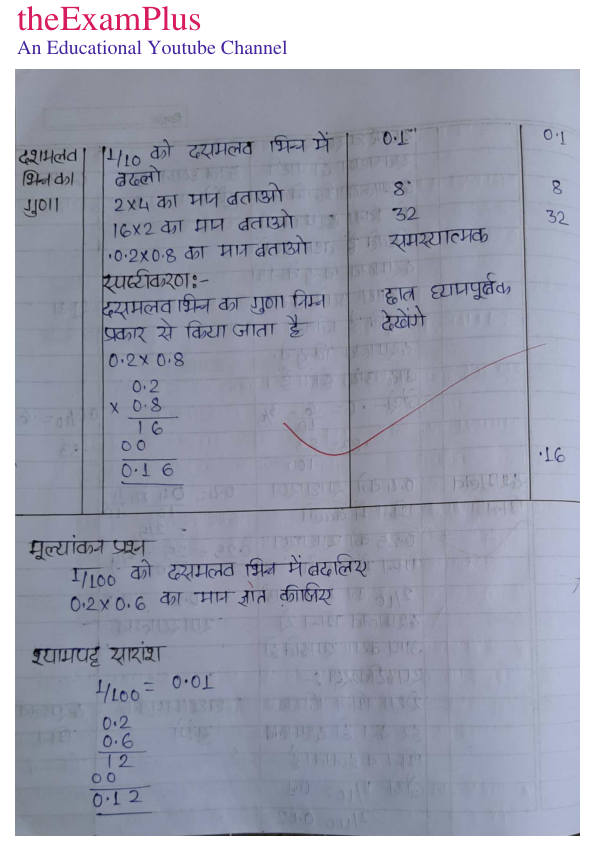 theExamPlus
An Educational Youtube Channel
दशमलव भिन्न का गुणा
1/10 को दसमलव भिन्न में बदलो
0.1
0.1
2×4 का मान बताओ
8
8
16×2 का मान बताओ
32
32
0.2×0.8 का मान बताओ
समस्यात्मक
स्पष्टीकरण:-
दसमलव भिन्न का गुणा निम्न
प्रकार से किया जाता है
छात्र ध्यानपूर्वक
देखेंगे
0.2×0.8
0.2
× 0.8
16
00
0.16
.16
मूल्यांकन प्रश्न
1/100 को दसमलव भिन्न में बदलिए
0.2×0.6 का मान ज्ञात कीजिए
श्यामपट्ट सारांश
1/100 = 0.01
0.2
0.6
12
00
0.12